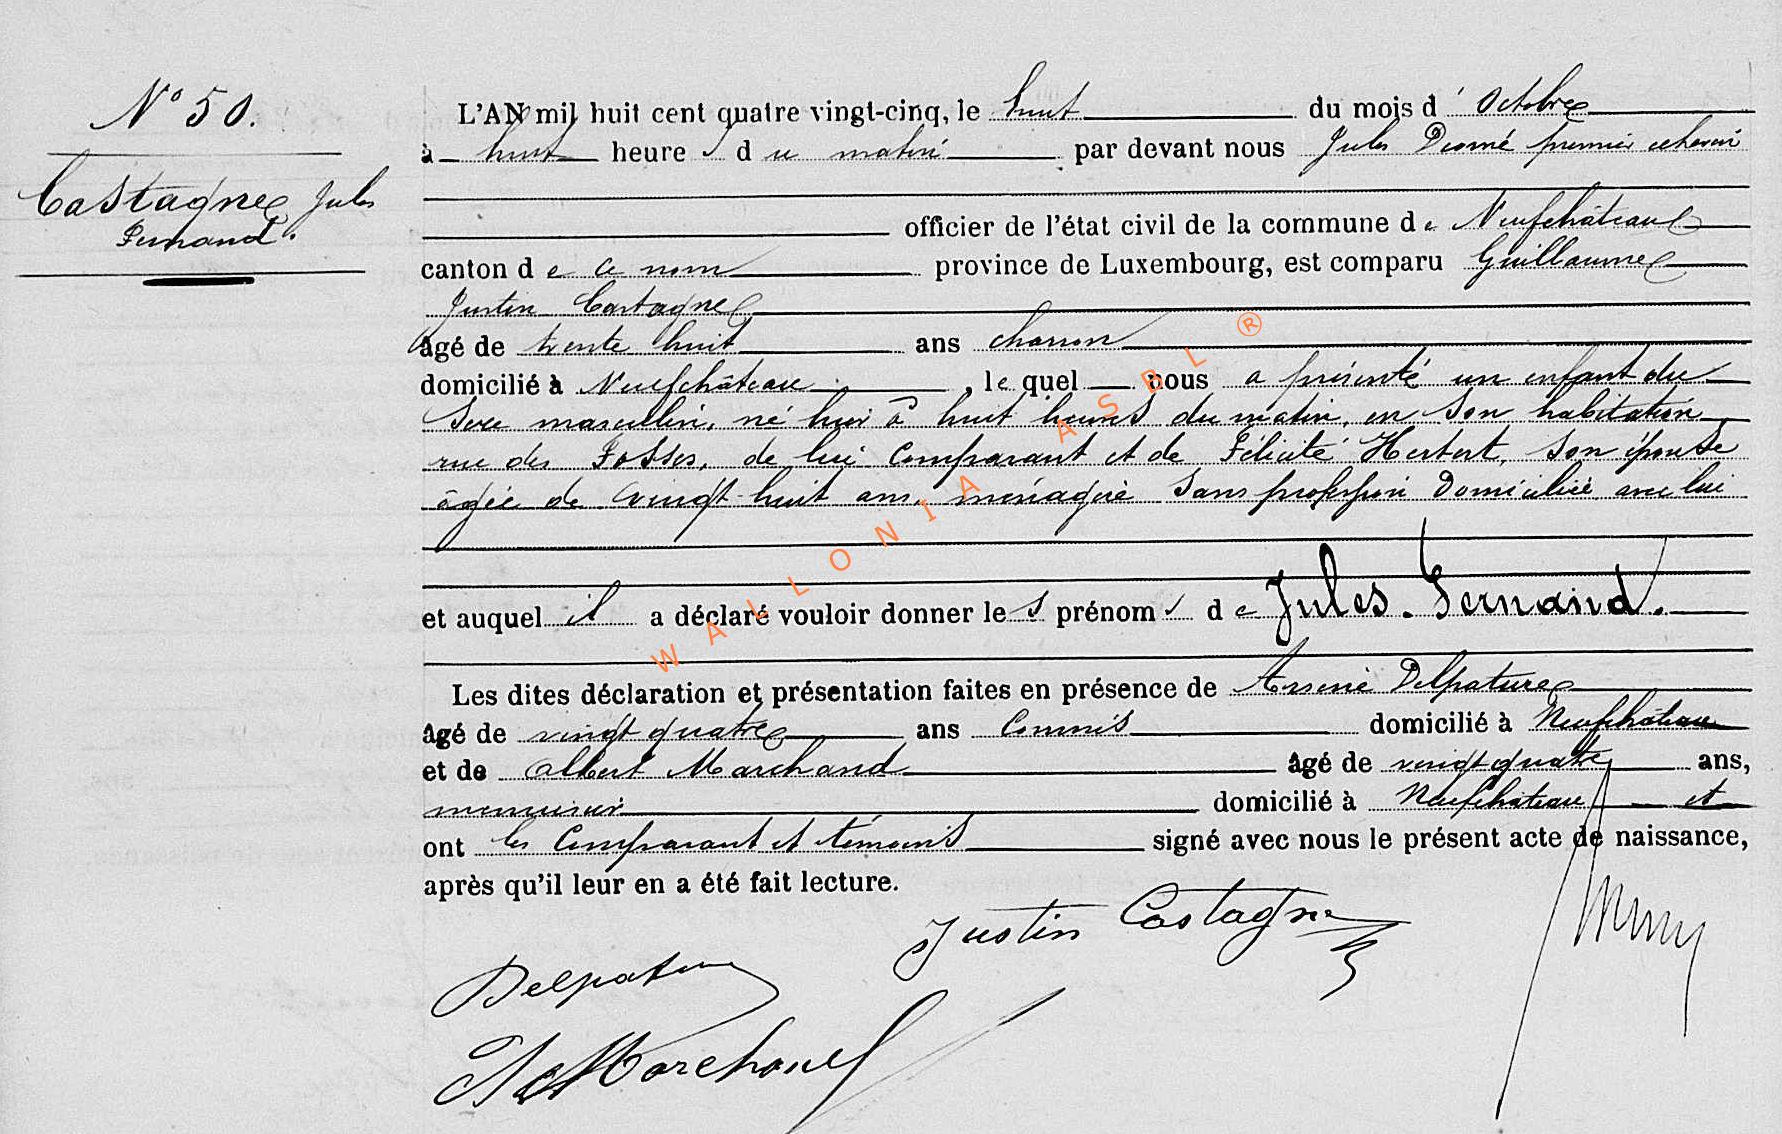 N° 50.
Castagne, Jules
Fernand.
L'AN mil huit cent quatre vingt-cinq, le huit du mois d' Octobre
à huit heure s du matin par devant nous Jules premier échevin
officier de l'état civil de la commune de Neufchâteau
canton de ce nom province de Luxembourg, est comparu Guillaume
Justin Castagne
âgé de trente huit ans charron
domicilié à Neufchâteau, lequel nous a présenté un enfant du
sexe masculin, né hier à huit heures du matin, en son habitation
rue des Fossés, de lui comparant et de Félicité Herbert, son épouse
âgée de vingt-huit ans, ménagère sans profession domiciliée avec lui
et auquel il a déclaré vouloir donner les prénoms de Jules. Fernand.
Les dites déclaration et présentation faites en présence de Arsène Delpature
âgé de vingt quatre ans Commis domicilié à Neufchâteau
et de Albert Marchand âgé de vingt quatre ans,
menuisier domicilié à Neufchâteau et
ont les Comparant et témoins signé avec nous le présent acte de naissance,
après qu'il leur en a été fait lecture.
Justin Castagne
Delpature
A Marchand
WALLONIA ASBL ®